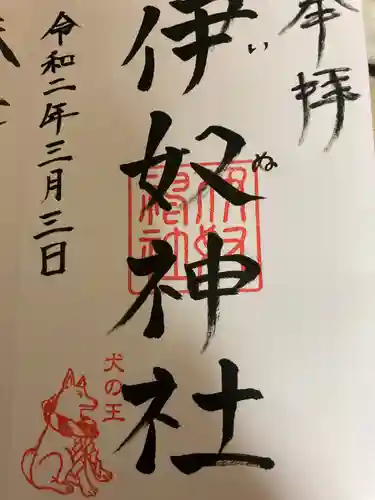 奉拝
伊奴神社
いぬ
伊奴神社
令和二年三月三日
犬の王